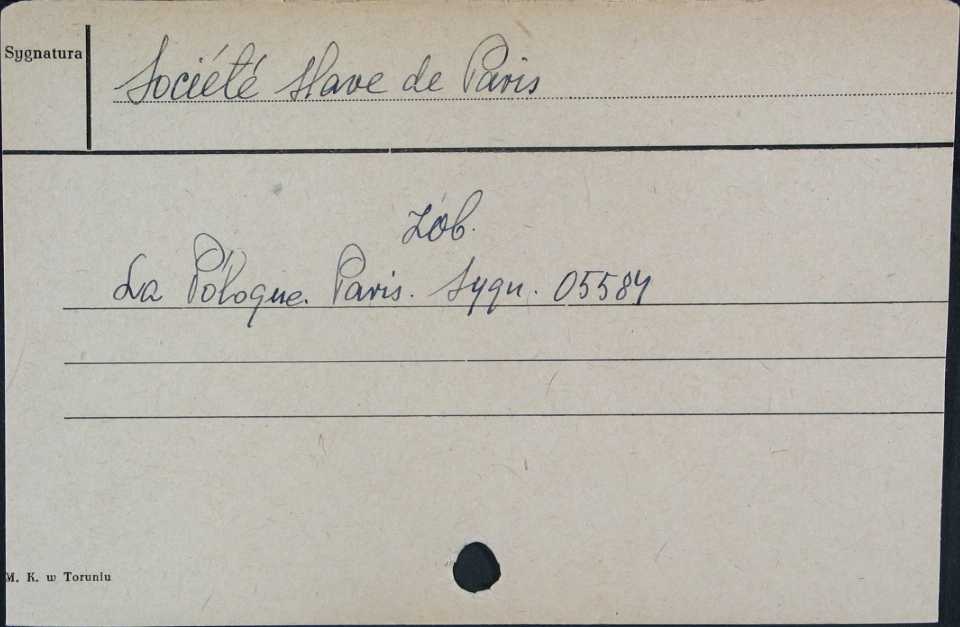 Sygnatura
Société slave de Paris
Zob.
La Pologne. Paris. Sygn. 05584
M. K. w Toruniu